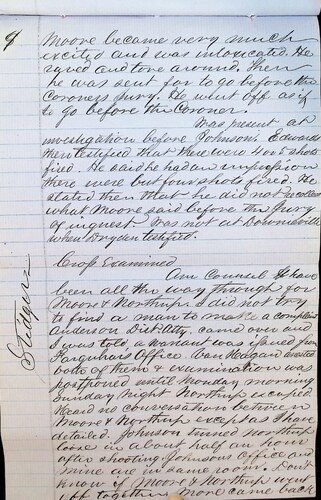 9
Moore became very much
excited and was intoxicated. He
raved and tore around. Then
he was sent for to go before the
Coroners Jury. He went off as if
to go before the Coroner.
Was present at
investigation before Johnson. Edwards
then testified that there were 4 or 5 shots
fired. He said he had an impression
there were but four shots fired. He
stated then that he did not recollect
what Moore said before the Jury
of inquest. Was not at Downieville
when Dryden testified.
Cross Examined
Am Counsel & have
been all the way through for
Moore & Northup. I did not try
to find a man to make a complaint
Anderson Dist Atty. came over and
I was told, a warrant was issued from
Farquhars Office. Van Hagan arrested
both of them & examination was
postponed until Monday morning
Sunday Night Northup escaped
Heard no conversation between
Moore & Northup except as I have
detailed. Johnson turned Northup
loose in about half an hour
after shooting Johnsons Office and
mine are in same room. Dont
know if Moore & Northup went
off together. Moore came back